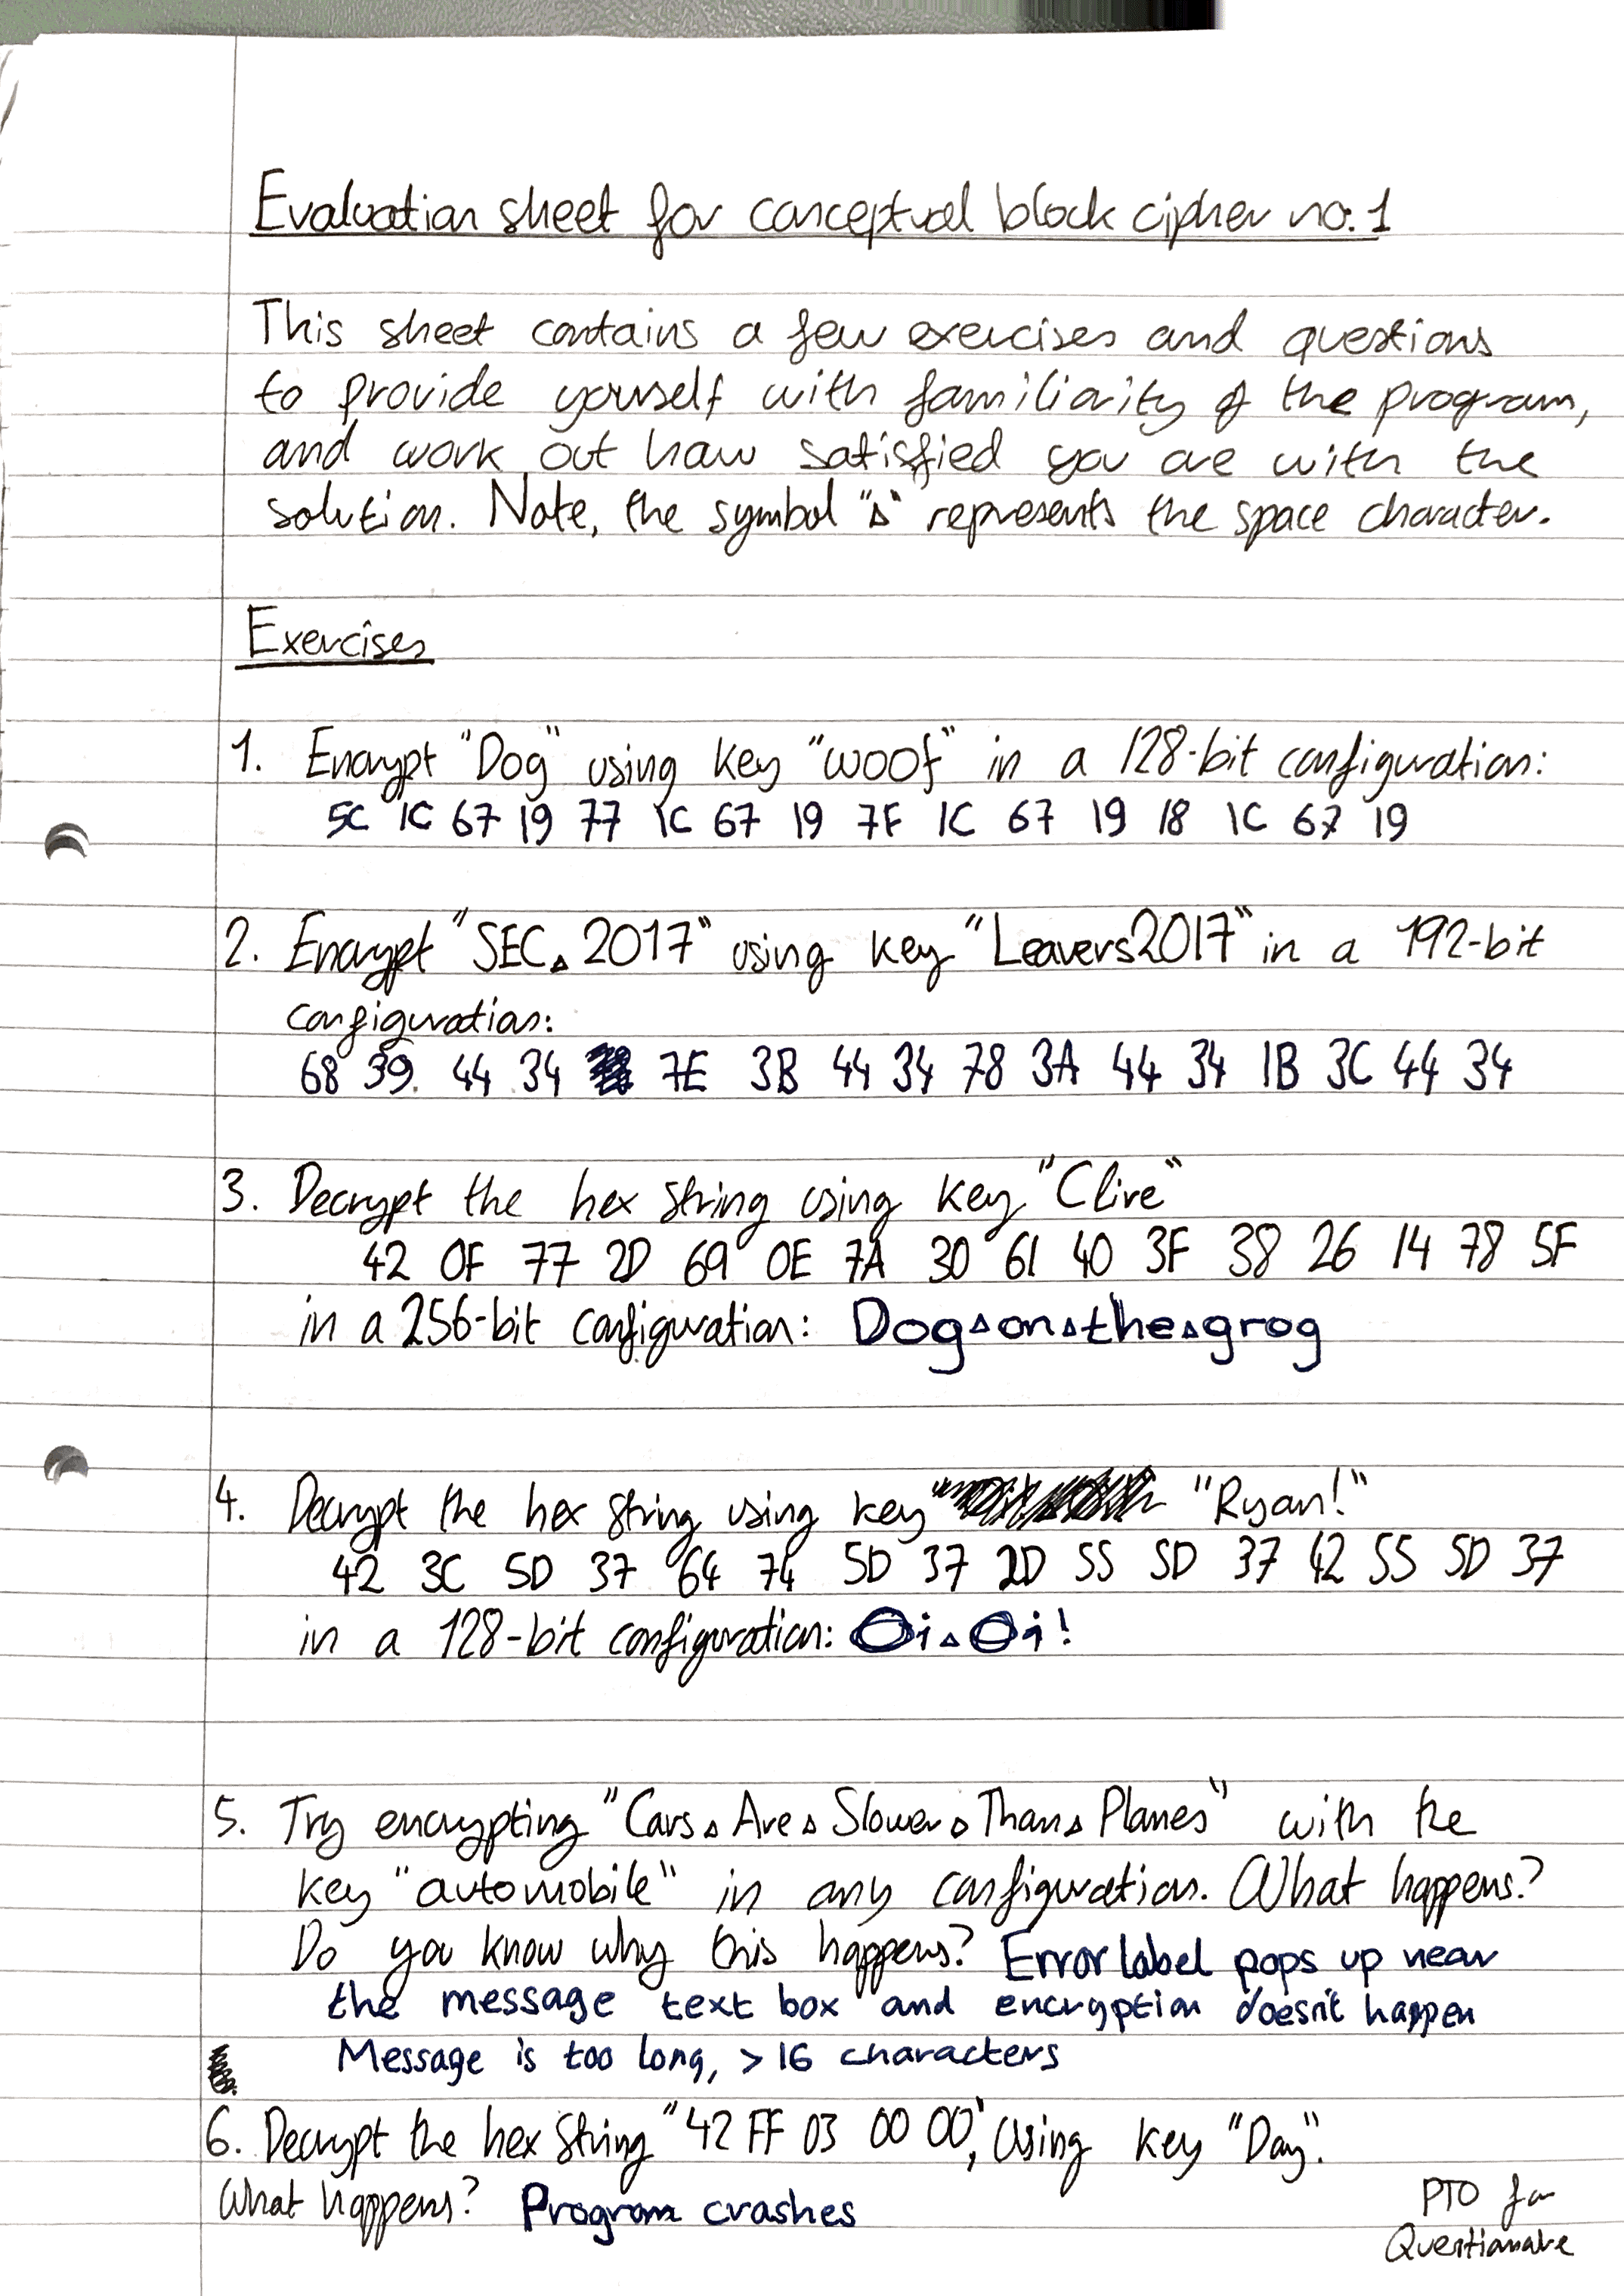 Evaluation sheet for conceptual block cipher no. 1
This sheet contains a few exercises and questions
to provide yourself with familiarity of the program,
and work out how satisfied you are with the
solution. Note, the symbol "▵" represents the space character.
Exercises
1. Encrypt "Dog" using key "woof" in a 128-bit configuration:
5C 1C 67 19 77 1C 67 19 7F 1C 67 19 18 1C 67 19
2. Encrypt "SEC▵2017" using key "Leavers2017" in a 192-bit
configuration:
68 39 44 34 7E 3B 44 34 78 3A 44 34 1B 3C 44 34
3. Decrypt the hex string using key "Clive"
42 0F 77 2D 69 0E 7A 30 61 40 3F 38 26 14 78 5F
in a 256-bit configuration: Dog▵on▵the▵grog
4. Decrypt the hex string using key "Ryan!"
42 3C 5D 37 64 74 5D 37 2D 55 5D 37 42 55 5D 37
in a 128-bit configuration: Oi▵Oi!
5. Try encrypting "Cars▵Are▵Slower▵Than▵Planes" with the
key "automobile" in any configuration. What happens?
Do you know why this happens? Error label pops up near
the message text box and encryption doesn't happen
Message is too long, > 16 characters
6. Decrypt the hex string "42 FF 03 00 00", using key "Day".
What happens? Program crashes
PTO for
Questionaire